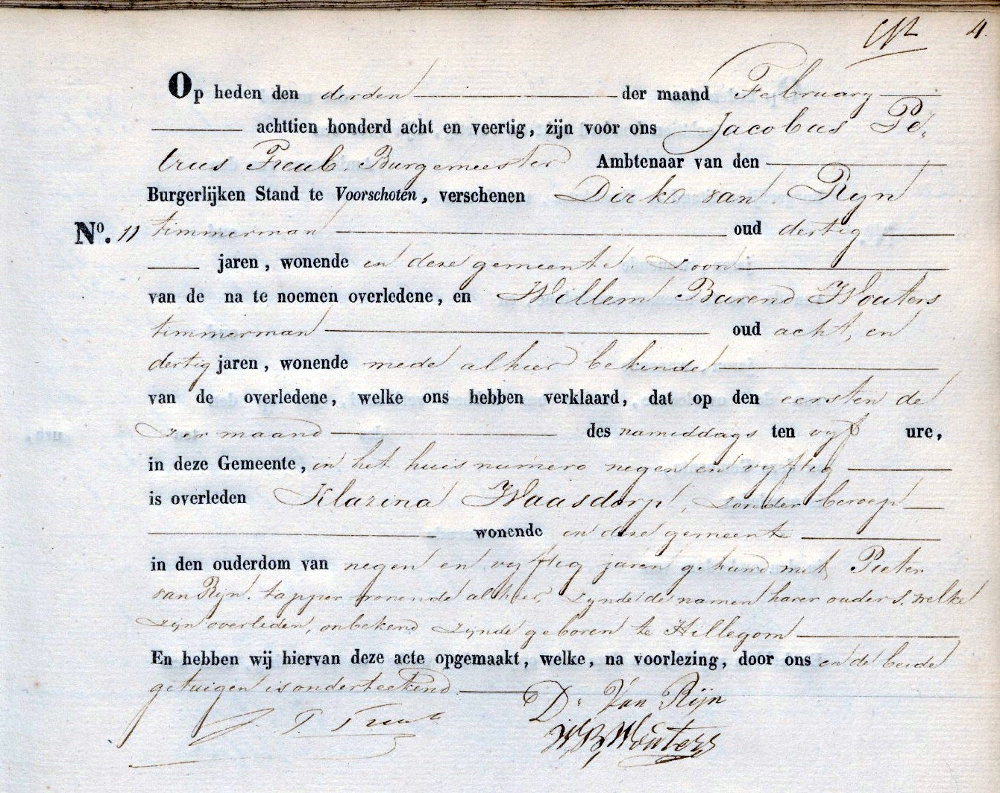 4.
Op heden den derden der maand February
achttien honderd acht en veertig, zijn voor ons Jacobus Pe-
trus Treub, Burgemeester Ambtenaar van den
Burgerlijken Stand te Voorschoten, verschenen Dirk van Rijn
No. 11 timmerman oud dertig
jaren, wonende in deze gemeente zoon
van de na te noemen overledene, en Willem Barend Wouters
timmerman oud acht en
dertig jaren, wonende mede alhier bekende
van de overledene, welke ons hebben verklaard, dat op den eersten de
zer maand des nameddags ten vijf ure,
in deze Gemeente, in het huis numero negen en vyftig
is overleden Klazina Waasdorp, zonder beroep
wonende in deze gemeente
in den ouderdom van negen en vyftig jaren gehuwd met Pieter
van Rijn. tapper wonende alhier. zynde de namen harer ouders. welke
zyn overleden, onbekend zynde geboren te Hillegom
En hebben wij hiervan deze acte opgemaakt, welke, na voorlezing, door ons en de beide
getuigen is onderteekend.
D. Van Rijn
J. P. Treub
WB Wouters